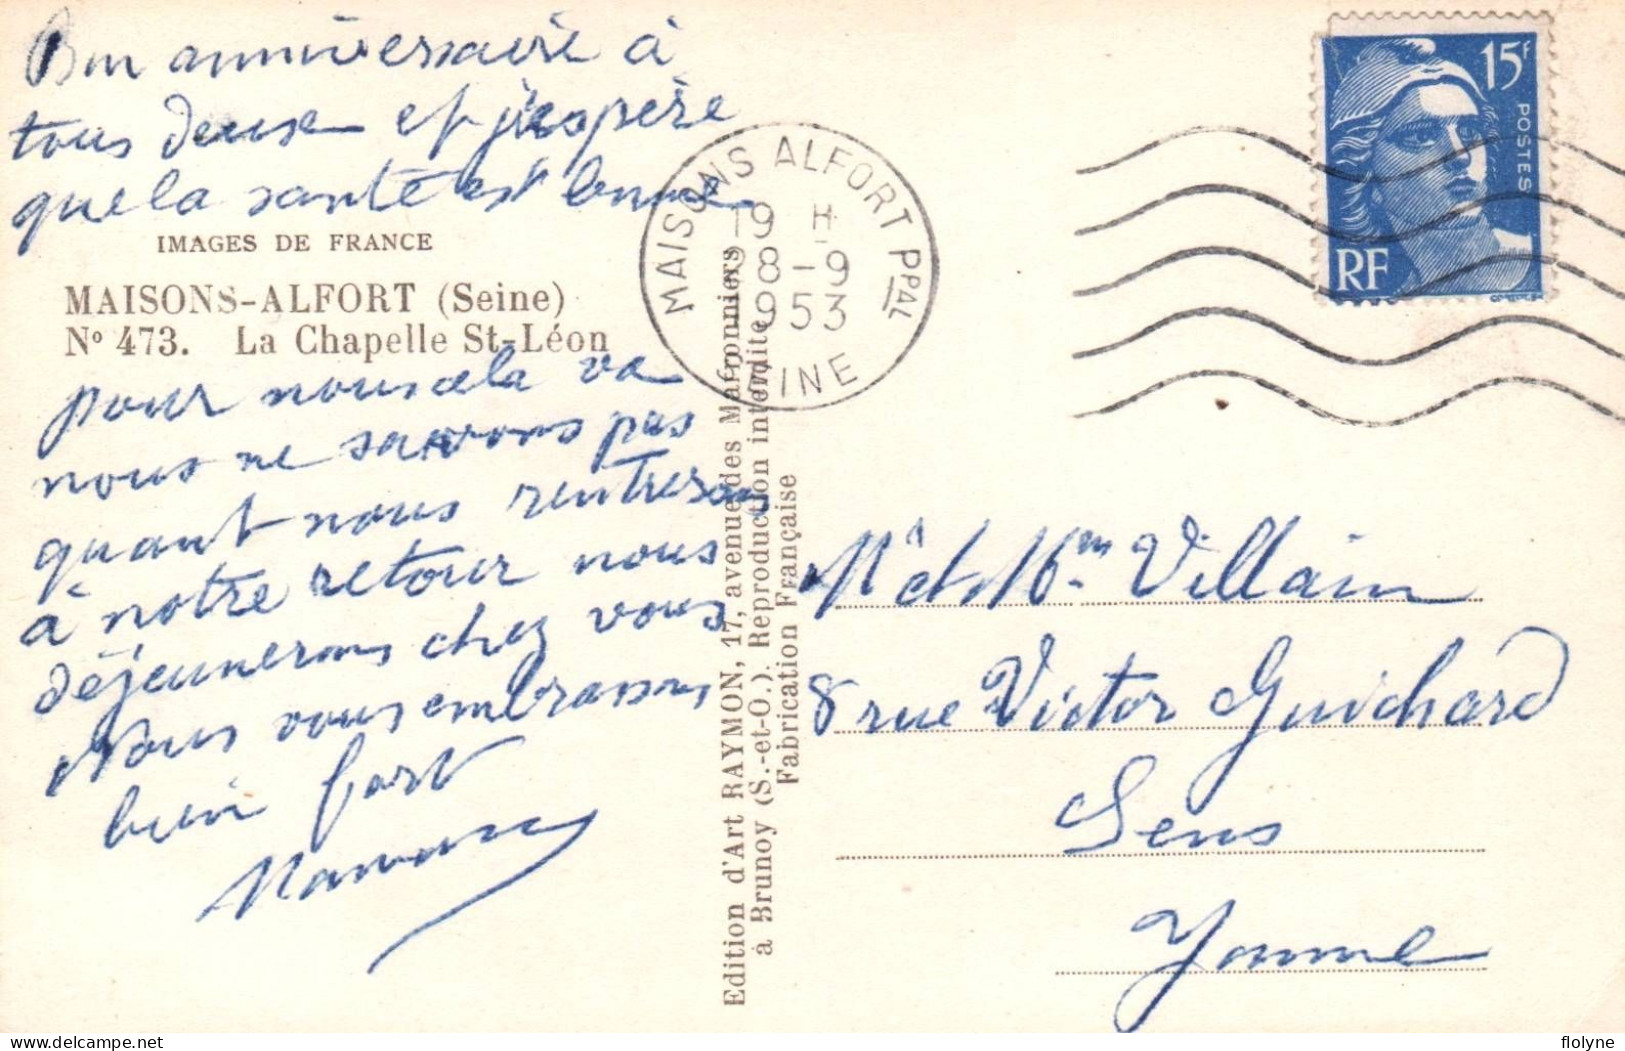 Bon anniversaire à
tous deux et j'espère
que la santé est bonne
IMAGES DE FRANCE
MAISONS-ALFORT (Seine)
Nº 473. La Chapelle St-Léon
pour nous cela va
nous ne savons pas
quant nous rentrerons
à notre retour nous
déjeunerons chez vous
Nous vous embrassons
bien fort
Edition d'Art RAYMON, 17, avenue des Marronniers
à Brunoy (S.-et-O.). Reproduction interdite
Fabrication Française
MAISONS ALFORT PPAL
19 H
8-9
1953
SEINE
15F
POSTES
RF
Mr et Mme Villain
8 rue Victor Guichard
Sens
Yonne
delcampe.net
flolyne